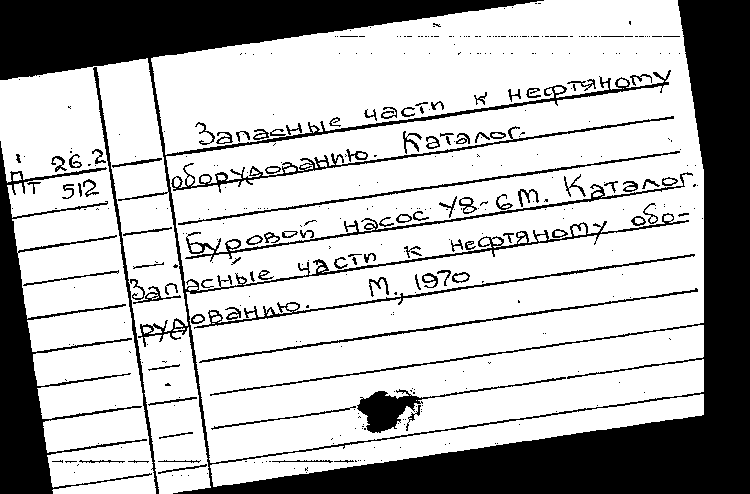 Запасные части к нефтяному
26.2
оборудованию. Каталог.
Пт 512
Буровой насос У8-6М. Каталог.
Запасные части к нефтяному обо-
рудованию. М., 1970